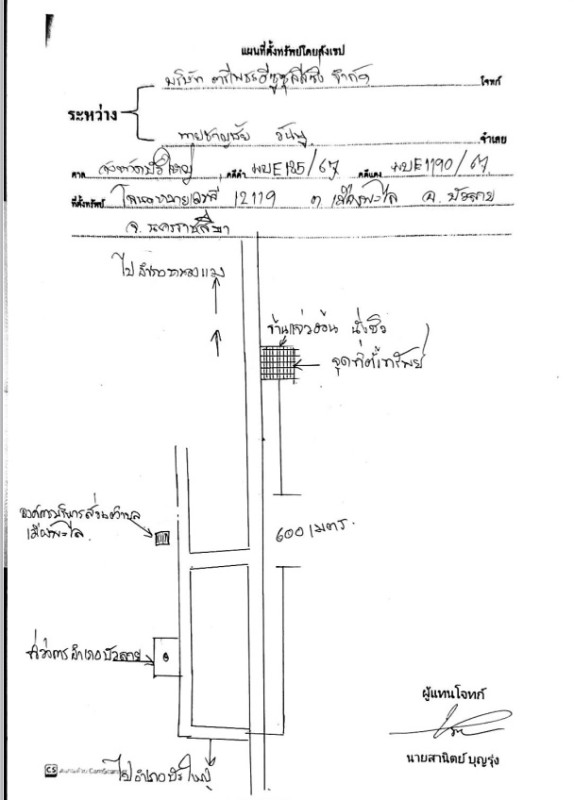 แผนที่ตั้งทรัพย์โดยสังเขป
บริษัท ตรีเพชรอีซูซุลิสซิ่ง จำกัด โจทก์
ระหว่าง
นายชาญชัย จำเลย
ศาล จังหวัดบัวใหญ่ คดีดำ ผบE185/67 คดีแดง ผบE1190/67
ที่ตั้งทรัพย์ โฉนดหมายเลขที่ 12119 ต เมืองพะไล อ. บัวลาย
จ. นครราชสีมา
ไปอำเภอหนองแวง
ร้านแจ่วฮ้อน
จุดที่ตั้งทรัพย์
องค์การบริหารส่วนตำบล
เมืองพะไล
600 เมตร.
ที่ว่าการอำเภอบัวลาย
ผู้แทนโจทก์
นายสานิตย์ บุญรุ่ง
CS สแกนด้วย CamScanner
ไปอำเภอบัวใหญ่